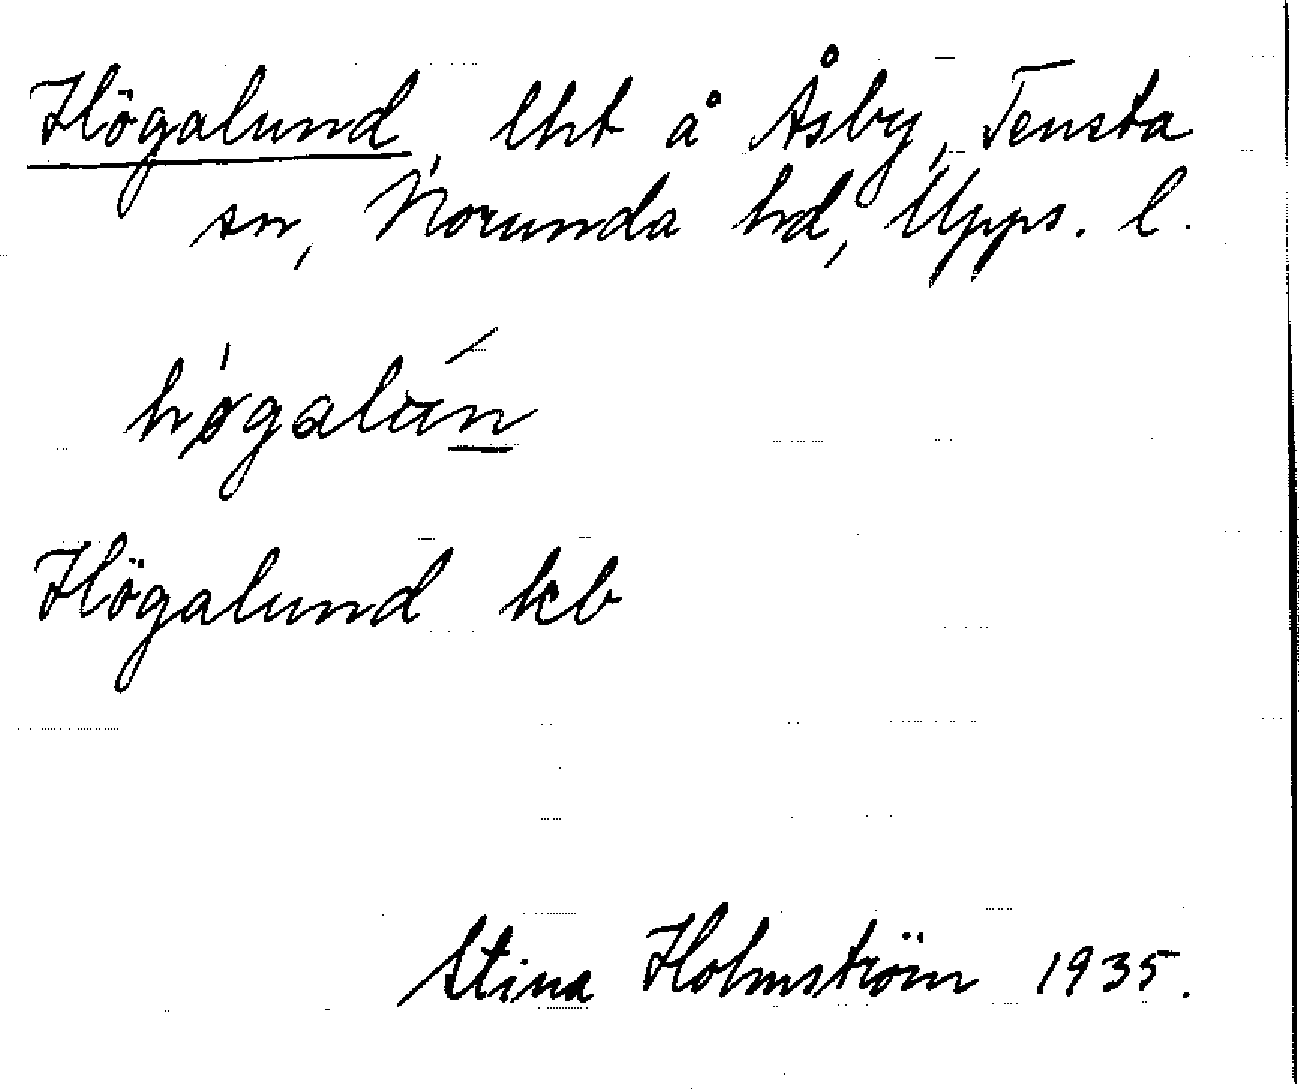 Högalund, lht å Åsby, Tensta
sn, Norunda hd, Upps. l.
hø̍galún
Högalund kb
Stina Holmström 1935.